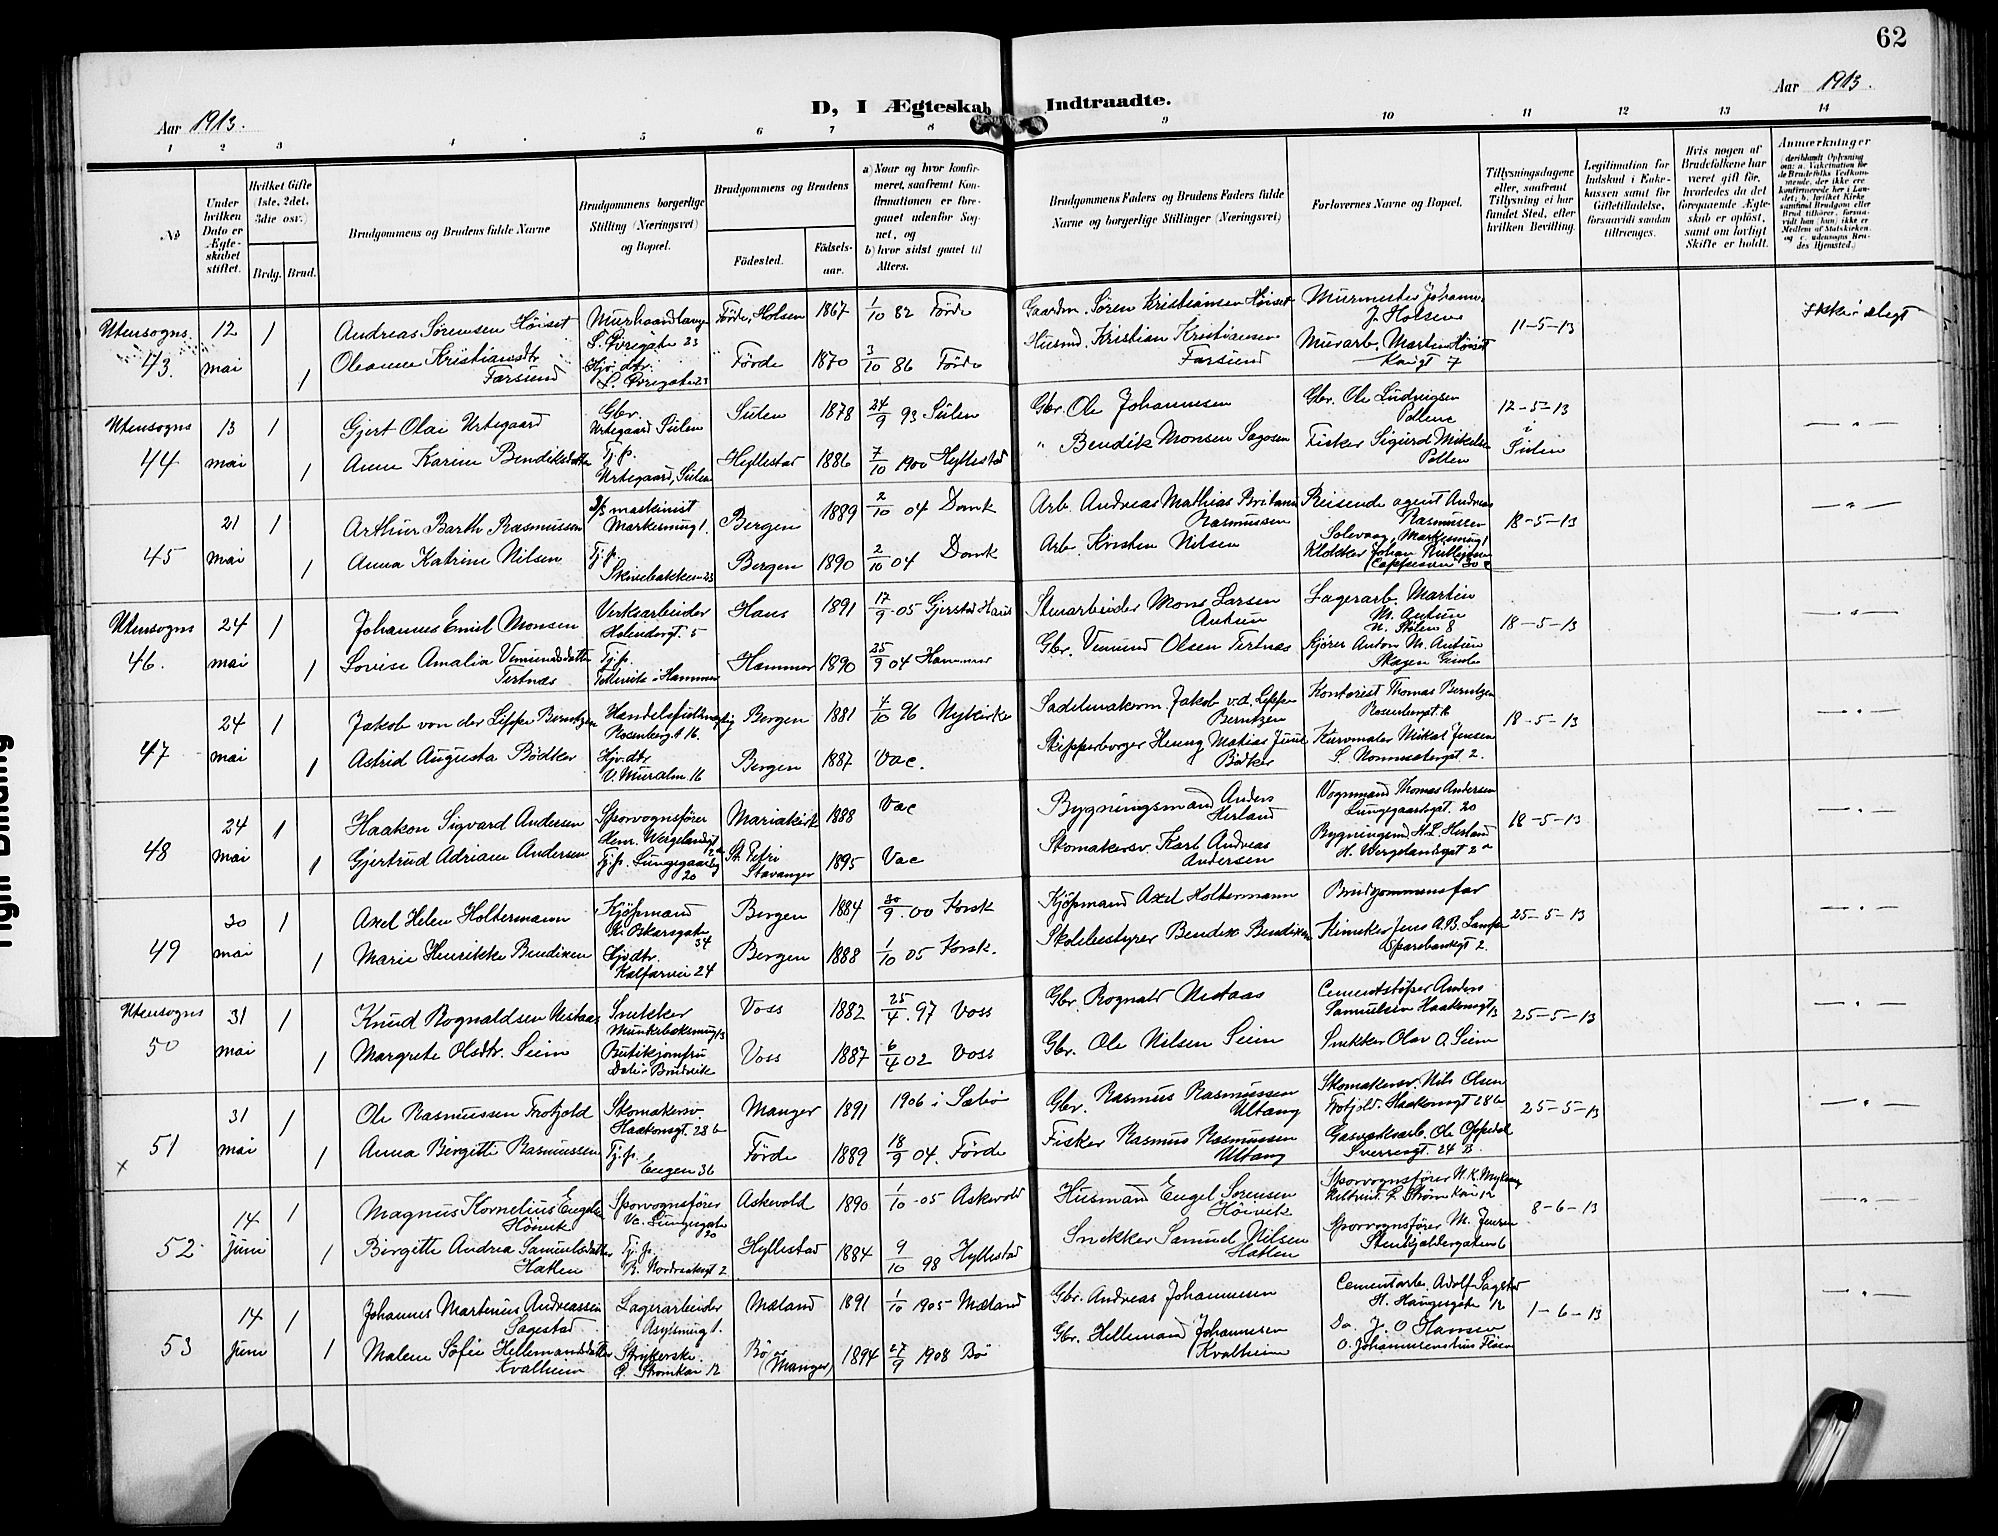 62
Aar 1913.
D, I Ægteskab Indtraadte.
Aar 1913.
1 2 3 4 5 6 7 8 9 10 11 12 13 14
No
Under hvilken Dato er Ægteskabet stiftet.
Hvilket Gifte (1ste, 2det, 3die osv.)
Brdg. Brud.
Brudgommens og Brudens fulde Navne
Brudgommens borgerlige Stilling (Næringsvei) og Bopæl.
Brudgommens og Brudens
Fødested.
Fødselsaar.
a) Naar og hvor konfirmeret, saafremt Konfirmationen er foregaaet udenfor Sognet, og
b) hvor sidst gaaet til Alters.
Brudgommens Faders og Brudens Faders fulde Navne og borgerlige Stillinger (Næringsvei)
Forlovernes Navne og Bopæl.
Tillysningsdagene eller, saafremt Tillysning ei har fundet Sted, efter hvilken Bevilling.
Legitimation for Indskud i Enkekassen samt for Giftetilladelse, forsaavidt saadan tiltrænges.
Hvis nogen af Brudefolkene har været gift før, hvorledes da det foregaaende Ægteskab er opløst, samt om lovligt Skifte er holdt.
Anmærkninger
(deriblandt Oplysning om: a. Vakcination for de Brudefolks Vedkommende, der ikke ere konfirmerede her i Landet; b. hvilket Kirkesamfund Brudgom eller Brud tilhører, forsaavidt han (hun) ikke er Medlem af Statskirken, og c. udensogns Brudes Hjemsted.)
Utensogns 43. 12 mai 1
Andreas Sørensen Höiset
Murhaandlanger
Förde, Holsen 1867 1/10 82 Förde
Gaardm. Sören Kristiansen Höiset
Murmester Johannes J. Holsen
11-5-13
Ikke i slegt
1 Oleanne Kristiansdtr Farsund
Hjv. dtr.
Förde 1870 3/10 86 Förde
Husmd. Kristian Kristiansen Farsund
Murarb. Martin Höiset
Utensogns 44 13 mai 1
Gjert Olai Urtegaard
Gbr. Urtegaard Sulen
Sulen 1878 24/9 93 Sulen
Gbr. Ole Johannesen
Gbr. Ole Ludvigsen Pollene
12-5-13 i Sulen
— " —
1 Anne Karine Bendiksdatter
Tj.p. Urtegaard, Sulen
Hyllestad 1886 7/10 1900 Hyllestad
" Bendik Monsen Sagosen
Fisker Sigurd Mikelsen Pollen
45 21 mai 1
Arthur Barth Rasmussen
maskinist
Bergen 1889 2/10 04 Domk
Arb. Andreas Mathias Rasmussen
Reisende agent Andreas Rasmussen
18-5-13
— " —
1 Anna Katrine Nilsen
Tj.p. Skivebakken 23
Bergen 1890 2/10 04 Domk
Arb. Kristen Nilsen
Klokker Johan
Utensogns 46. 24 mai 1
Johannes Emil Monsen
Verksarbeider
Haus 1891 17/9 05 Gjerstad Haus
Stenarbeider Mons Larsen Autun
Lagerarb. Martin M. Autun
N. Stølen 8
18-5-13
— " —
1 Lovise Amalia Vemundsdatter Tertnæs
Tj.p. i Hammer
Hammer 1890 25/9 04 Hammer
Gbr. Vemund Olsen Tertnæs
Kjörer Anton M. Autun
47 24 mai 1
Jakob von der Lippe Berntzen
Handelsfuldmægtig
Rosenberg.t 16.
Bergen 1881 4/10 96 Nykirke
Sadelmakerm. Jakob v.d. Lippe Berntzen
Kontorist Thomas Berntzen
Rosenbergt. 16
18-5-13
— " —
1 Astrid Augusta Bødtker
Hjv. dtr. V. Muralm. 16
Bergen 1887 Vac.
Skipperborger Henrg Matias Juul Bödtker
Kurvmaker Mikal Jensen
48 24 mai 1
Haakon Sigvard Andersen
Sporvognsförer
Henr. Wergelandsgt. 2a
Mariakirk 1888 Vac
Bygningsmand Anders Herland
Vognmand Thomas Andersen
Lungegaardsgt. 20
18-5-13
— " —
1 Gjertrud Adriane Andersen
Tj.p. Lungegaardsg 20
St. Petri Stavanger 1895 Vac
Skomakersv. Karl Andreas Andersen
Bygningsmd H.L. Herland
H. Wergelandsgt 2a
49 30 mai 1
Axel Helen Holtermann
Kjöpmand
St. Oskarsgate 34
Bergen 1884 30/9 00 Korsk
Kjöpmand Axel Holtermann
Brudgommens far
25-5-13
— " —
1 Marie Henrikke Bendixen
Hjv. dtr. Kalfarvei 24
Bergen 1888 1/10 05 Korsk.
Skolebestyrer Bendix Bendixen
Jens A.B. Lampe
Sparebanksgt 2.
Utensogns 50 31 mai 1
Knud Rognaldsen Nestaas
Snekker
Voss 1882 25/4 97 Voss
Gbr. Rognald Nestaas
Cementstøper Anders Samuelsen Haakonsgt 13
25-5-13
— " —
1 Margrete Olsdtr. Seim
Butikjomfru
Voss 1887 6/4 02 Voss
Gbr. Ole Nilsen Seim
Snekker Olav O. Seim
51 x 31 mai 1
Ole Rasmussen Frotjold
Skomakersv.
Haakonsgt. 28 b
Manger 1891 1906 i Sæbö
Gbr. Rasmus Rasmussen Ultang
Skomakersv. Nils Olsen Frotjold. Haakonsgt 28 b
25-5-13
— " —
1 Anna Birgitte Rasmussen
Tj.p. Engen 36
Förde 1889 18/9 04. Förde
Fisker Rasmus Rasmussen Ultang
Gasverksarb. Ole Oppedal
Sverresgt. 24 B.
52 14 juni 1
Magnus Kornelius Engelsen Höivik
Sporvognsförer
Askevold 1890 1/10 05 Askevold
Husmand Engel Sorensen Höivik
Sporvognsförer
8-6-13
— " —
1 Birgitte Andrea Samuelsdatter Hatlem
Tj.p. R. Nordraaksgt 2
Hyllestad 1884 9/10 98 Hyllestad
Snekker Samuel Nilsen Hatlem
Sporvognsförer M. Jensen
Stenkjeldergaten 6
53 14 juni 1
Johannes Martinus Andreassen Sagestad
Lagerarbeider
Mæland 1891 1/10 1905 Mæland
Gbr. Andreas Johannesen
Cementarb. Adolf Sagstad
H. Haugesgate 12
1-6-13
— " —
1 Malene Sofie Hellemandsdatter Kvalheim
Strykerske
C. Strømkai 12
Bö (Manger) 1894 27/9 1908 Bö
Gbr. Hellemand Johannesen Kvalheim
Do. J. O Hansen